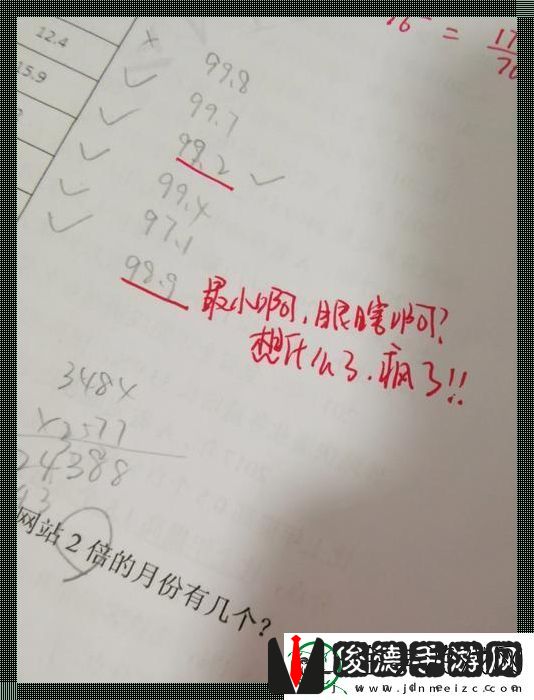 12.4
15.9
99.8
99.7
99.2
99.4
97.1
98.9
最小啊,眼瞎啊?
想什么了.疯了!!
3484
×2577
24388
网站2倍的月份有几个?
俊德手游网
www.jdnmeizc.com